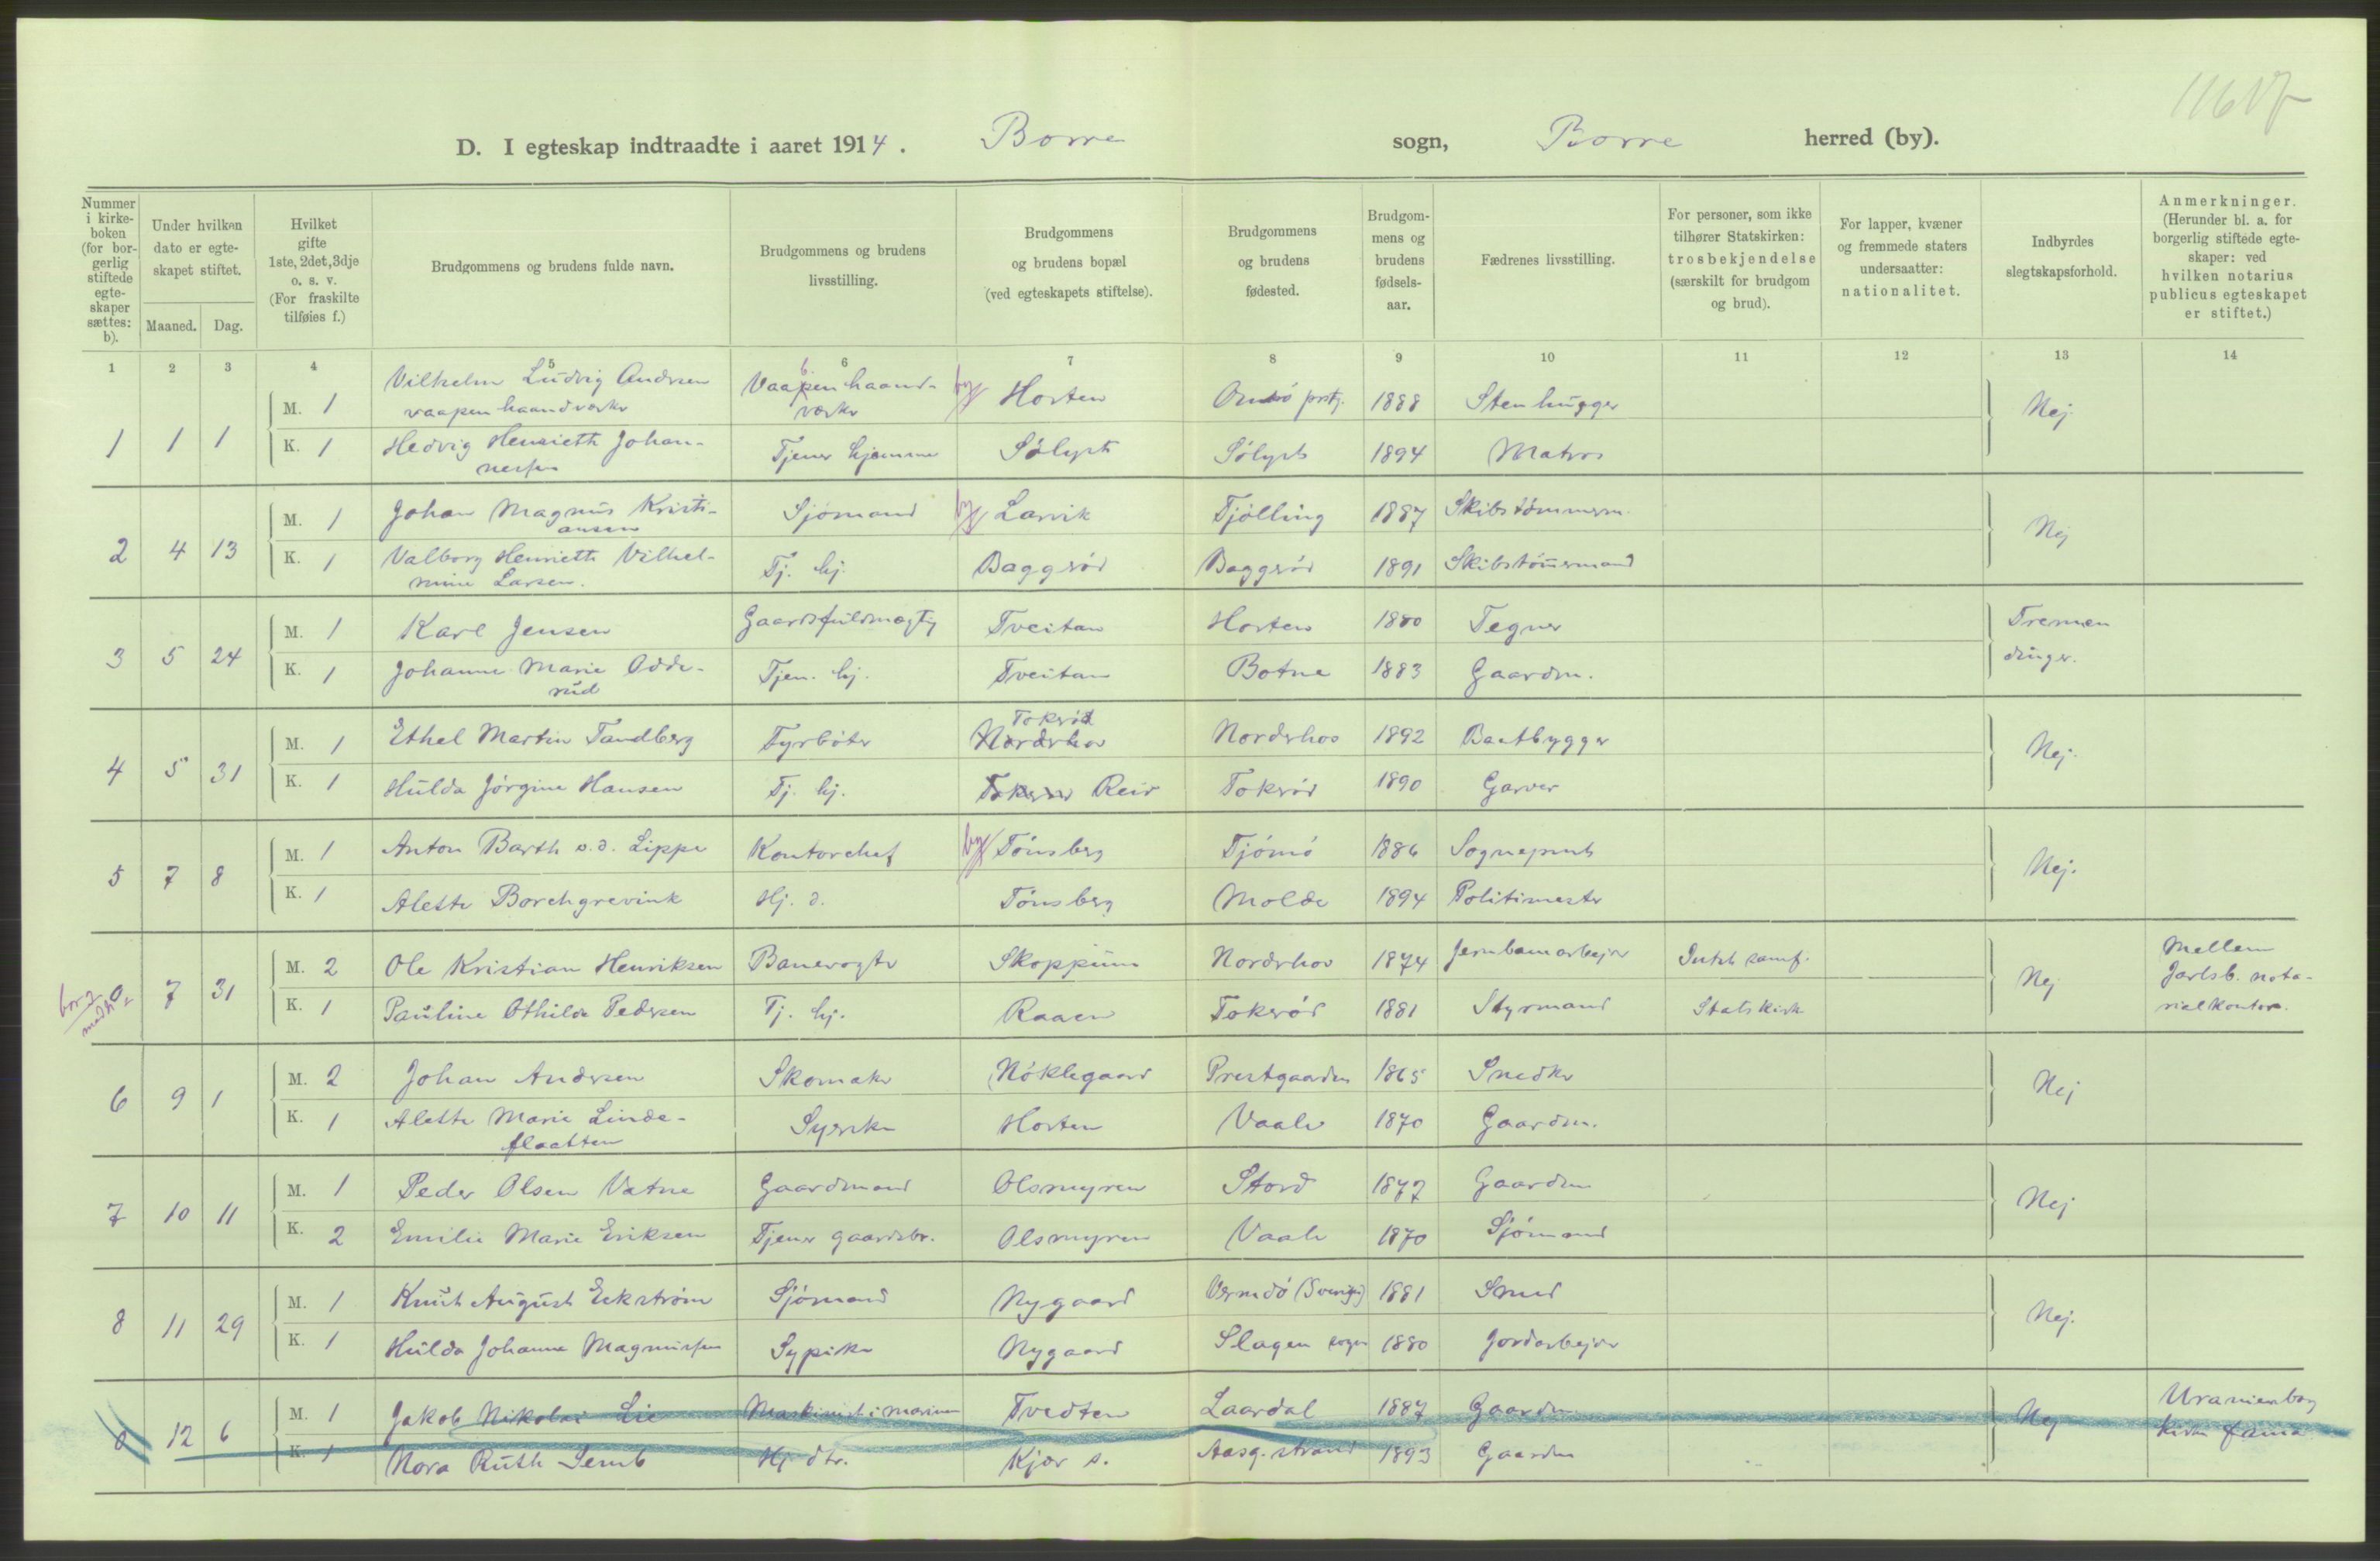 D. I egteskap indtraadte i aaret 1914. Borre sogn, Borre herred (by).
Nummer i kirkeboken (for borgerlig stiftede egteskaper sættes: b).
Under hvilken dato er egteskapet stiftet.
Maaned. Dag.
Hvilket gifte 1ste, 2det, 3dje o. s. v. (For fraskilte tilføies f.)
Brudgommens og brudens fulde navn.
Brudgommens og brudens livsstilling.
Brudgommens og brudens bopæl (ved egteskapets stiftelse).
Brudgommens og brudens fødested.
Brudgommens og brudens fødselsaar.
Fædrenes livsstilling.
For personer, som ikke tilhører Statskirken: trosbekjendelse (særskilt for brudgom og brud).
For lapper, kvæner og fremmede staters undersaatter: nationalitet.
Indbyrdes slegtskapsforhold.
Anmerkninger. (Herunder bl. a. for borgerlig stiftede egteskaper: ved hvilken notarius publicus egteskapet er stiftet.)
1 2 3 4 5 6 7 8 9 10 11 12 13 14
1 1 1 M. 1 Vilhelm Ludvig Andersen vaapenhaandverker Vaapenhaandverker by Horten 1888 Stenhugger Nej.
K. 1 Hedvig Henriette Johannessen Tjener hjemme Sølyst Sølyst 1894 Matros
2 4 13 M. 1 Johan Magnus Kristiansen Sjømand by Larvik Tjølling 1887 Skibstømmerm. Nej
K. 1 Valborg Henriette Vilhelmine Larsen. Tj. hj. Baggerød Baggerød 1891 Skibstømmermand
3 5 24 M. 1 Karl Jensen Gaardsfuldmægtig Tveitan Horten 1880 Tegner Tremendinger.
K. 1 Johanne Marie Odderud Tjen. hj. Tveitan Botne 1883 Gaardm.
4 5 31 M. 1 Ethel Martin Tandberg Fyrbøter Tokerød Norderhov Norderhov 1892 Baatbygger Nej.
K. 1 Hulda Jørgine Hansen Tj. hj. Tokerød Reir Tokerød 1890 Garver
5 7 8 M. 1 Anton Barth v. d. Lippe Kontorchef by Tønsberg Tjømø 1886 Sogneprest Nej.
K. 1 Alette Borchgrevink Hj. d. Tønsberg Molde 1894 Politimester
0 7 31 M. 2 Ole Kristian Henriksen Banevogter Skoppum Norderhov 1874 Jernbanearbejder Intet samf. Nej Mellem Jarlsb. notarialkontor.
K. 1 Pauline Othilde Pedersen Tj. hj. Raaen Tokerød 1881 Styrmand Statskirk
6 9 1 M. 2 Johan Andersen Skomaker Nøklegaard Prestgaarden 1865 Snedker Nej
K. 1 Alette Marie Lindeflaatten Syerske Horten Vaale 1870 Gaardm.
7 10 11 M. 1 Peder Olsen Vatne Gaardmand Olsmyren Stord 1877 Gaardm Nej
K. 2 Emilie Marie Eriksen Tjener gaardsbr. Olsmyren Vaale 1870 Sjømand
8 11 29 M. 1 Knut August Eckstrøm Sjømand Nygaard Vermdø (Sverige) 1881 Smed Nej.
K. 1 Hulda Johanne Magnussen Sypike Nygaard Slagen sogn 1880 Jordarbejder
0 12 6 M. 1 Jakob Nikolai Lie Maskinist i marinen Tvedten Laardal 1887 Gaardm Nej Uranienborg
K. 1 Nora Ruth Semb Hj dtr. Kjær s. Aasg. strand 1893 Gaardm